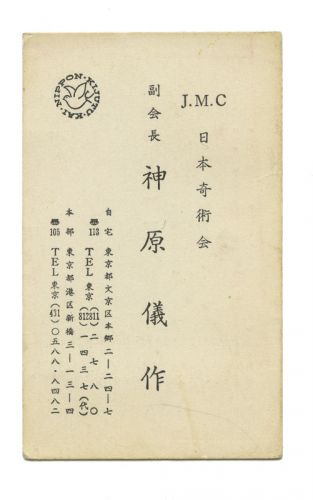 J.M.C
日本奇術会
副会長 神原儀作
自宅 東京都文京区本郷二―二四―七
〠113 TEL 東京(811)二七八〇
(812)一四三七(代)
本部 東京都港区新橋三―一三―四
〠105 TEL 東京(431)〇五八八・八四八二
NIPPON・KIJUTU・KAI・